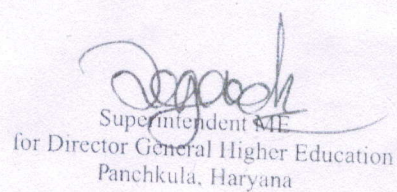 Superintendent ME
for Director General Higher Education
Panchkula, Haryana